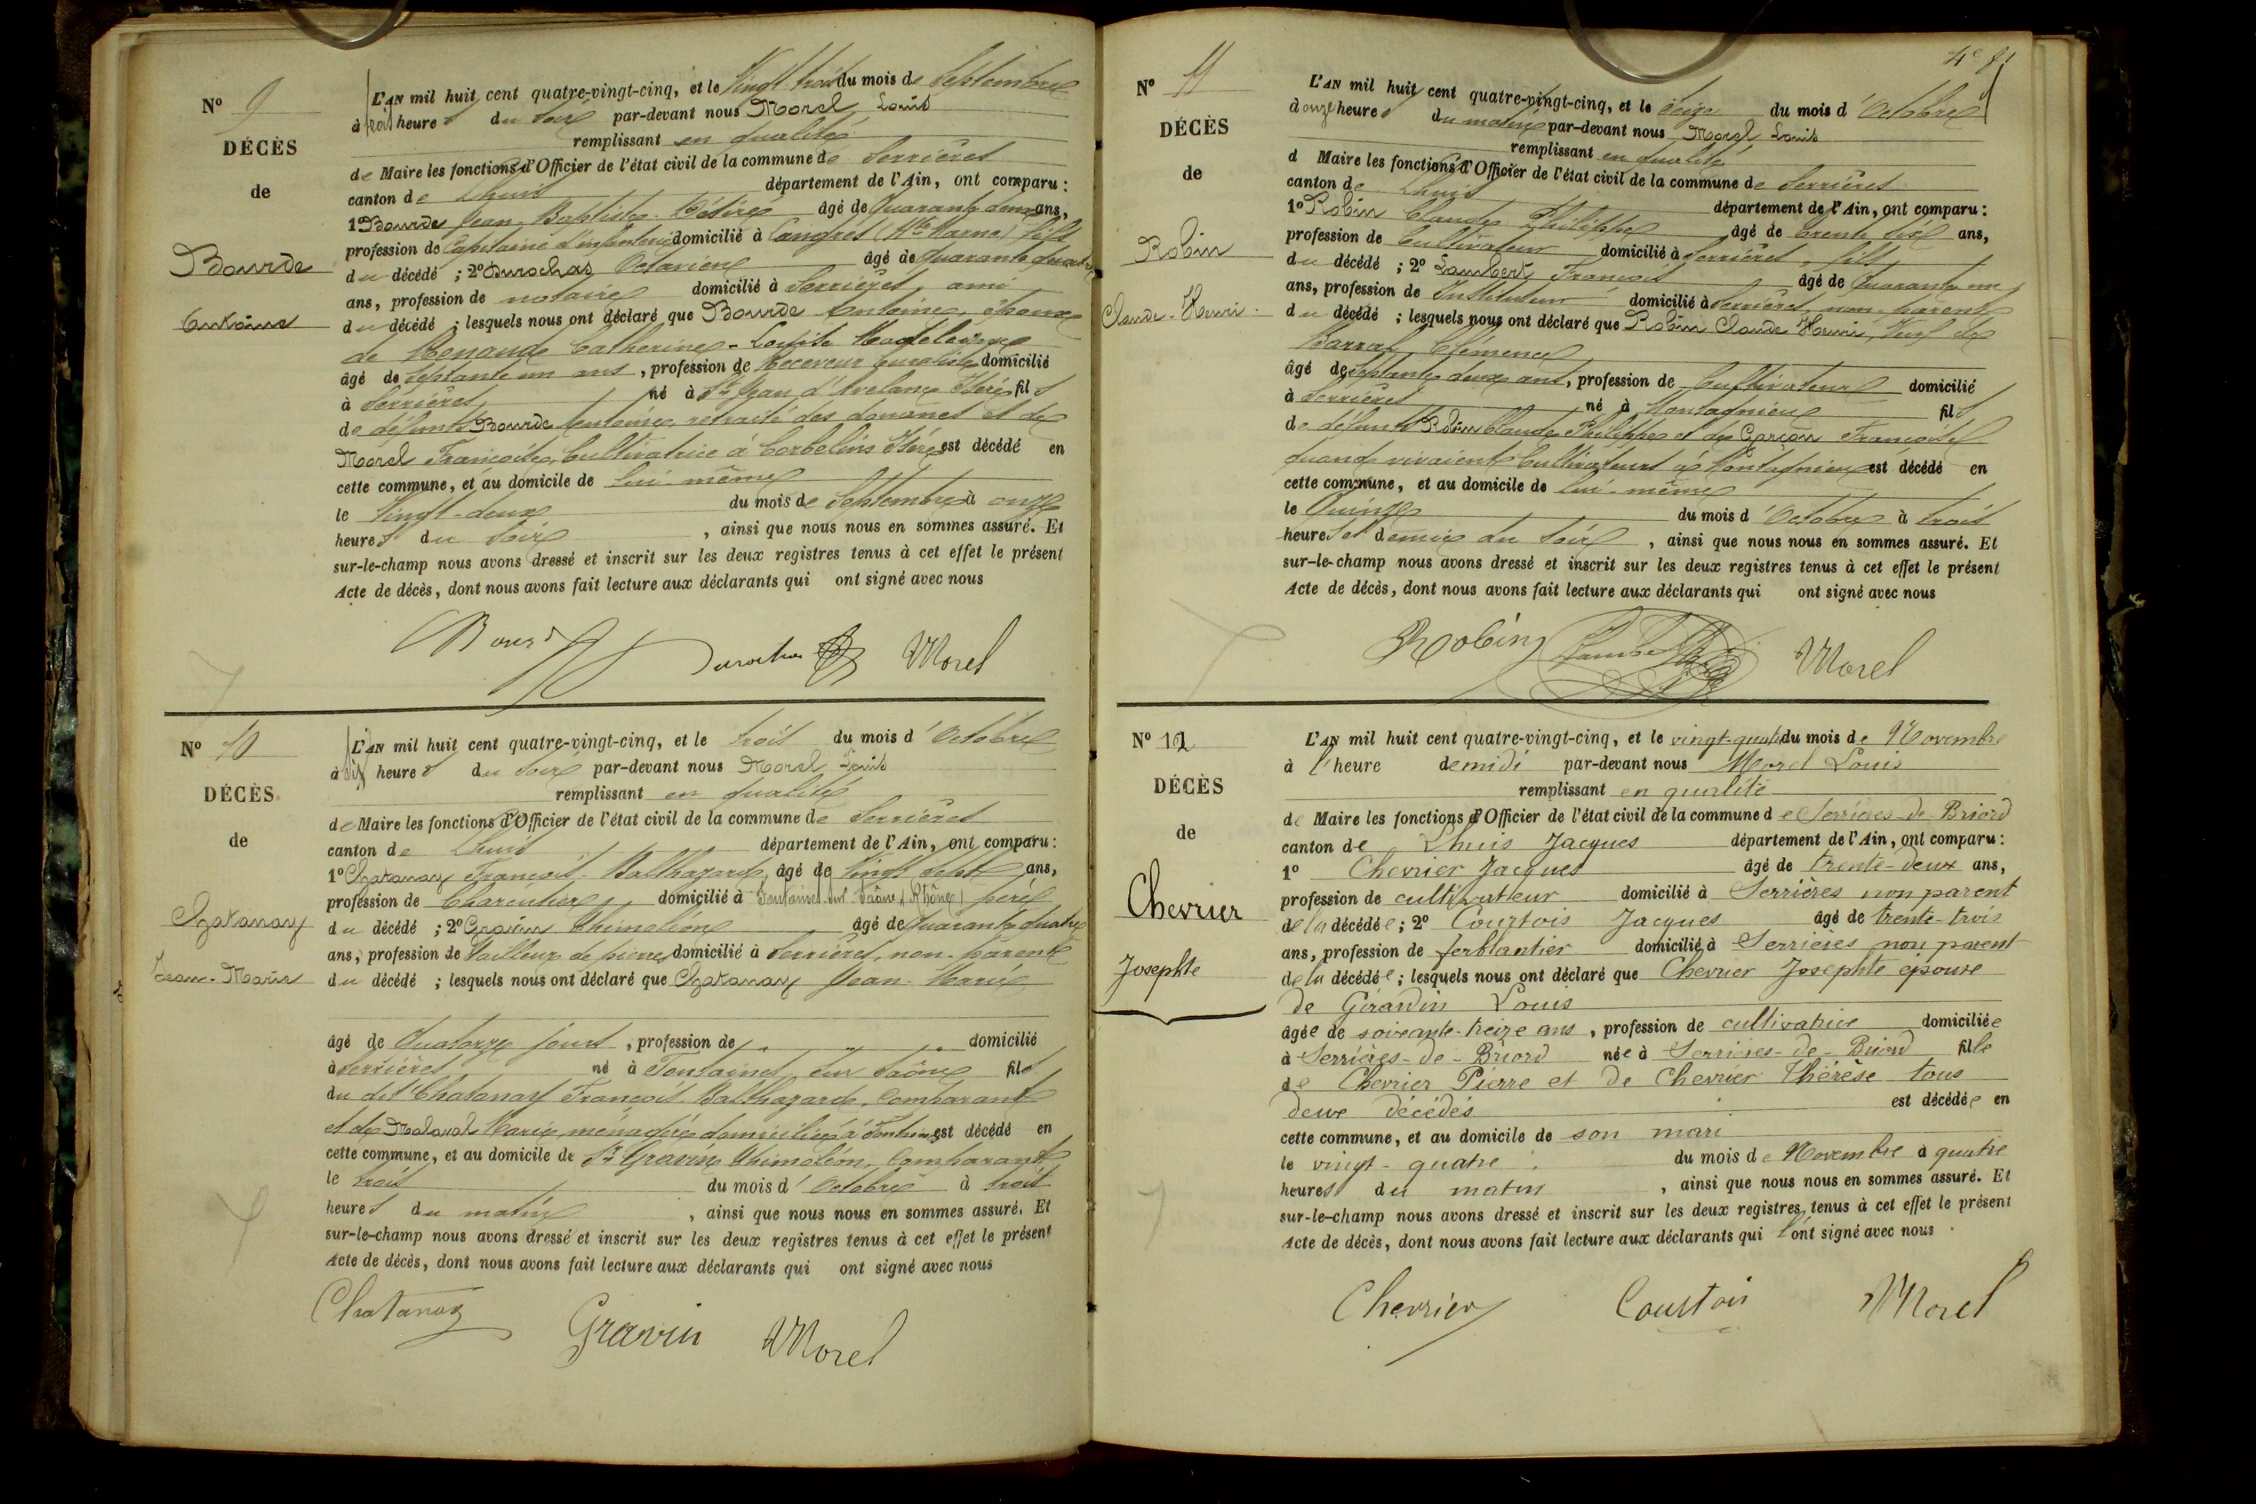 Nº 9
DÉCÈS
de
Bourde
Antoine
L'AN mil huit cent quatre-vingt-cinq, et le Vingt trois du mois de Septembre
à trois heures du soir par-devant nous Morel Louis
remplissant en qualité
de Maire les fonctions d'Officier de l'état civil de la commune de Serrières
canton de Lhuis département de l'Ain, ont comparu :
1º Bourde Jean-Baptiste Désiré âgé de Quarante deux ans,
profession de Capitaine d'infanterie domicilié à Langres (Hte Marne) fils
du décédé ; 2º Durochas Octavien âgé de quarante quatre
ans, profession de notaire domicilié à Serrières, ami
du décédé ; lesquels nous ont déclaré que Bourde Antoine, époux
de Renaude Catherine-Louise Magdeleine
âgé de septante un ans, profession de Receveur buraliste domicilié
à Serrières né à St Jean d'Avelane Isère fils
de défunts Bourde Antoine, retraité des douanes et de
Morel Françoise, Cultivatrice à Corbelins Isère est décédé en
cette commune, et au domicile de lui-même
le Vingt-deux du mois de Septembre à onze
heures du soir , ainsi que nous nous en sommes assuré. Et
sur-le-champ nous avons dressé et inscrit sur les deux registres tenus à cet effet le présent
Acte de décès, dont nous avons fait lecture aux déclarants qui ont signé avec nous
Bourde Durochas Morel
Nº 10
DÉCÈS
de
Chatanay
Jean-Marie
L'AN mil huit cent quatre-vingt-cinq, et le trois du mois d'Octobre
à six heures du soir par-devant nous Morel Louis
remplissant en qualité
de Maire les fonctions d'Officier de l'état civil de la commune de Serrières
canton de Lhuis département de l'Ain, ont comparu :
1º Chatanay François-Balthazard, âgé de Vingt sept ans,
profession de Charcutier domicilié à Fontaines-sur-Saône (Rhône) père
du décédé ; 2º Gravin Thimoléon âgé de quarante quatre
ans, profession de Tailleur de pierres domicilié à Serrières, non-parent
du décédé ; lesquels nous ont déclaré que Chatanay Jean-Marie
âgé de Quatorze jours, profession de domicilié
à Serrières né à Fontaines sur Saône fils
du dit Chatanay François Balthazard, Comparant
et de Marie ménagère domiciliée à Fontaines est décédé en
cette commune, et au domicile de Sr Gravin Thimoléon, Comparant
le trois du mois d'Octobre à trois
heures du matin , ainsi que nous nous en sommes assuré. Et
sur-le-champ nous avons dressé et inscrit sur les deux registres tenus à cet effet le présent
Acte de décès, dont nous avons fait lecture aux déclarants qui ont signé avec nous
Chatanay Gravin Morel
Nº 11
DÉCÈS
de
Robin
Claude-Henri
L'AN mil huit cent quatre-vingt-cinq, et le Seize du mois d'Octobre
à onze heures du matin par-devant nous Morel Louis
remplissant en qualité
d Maire les fonctions d'Officier de l'état civil de la commune de Serrières
canton de Lhuis département de l'Ain, ont comparu :
1º Robin Claude Philippe âgé de trente six ans,
profession de Cultivateur domicilié à Serrières, fils
du décédé ; 2º Lambert François âgé de Quarante un
ans, profession de Instituteur domicilié à Serrières, non-parent
du décédé ; lesquels nous ont déclaré que Robin Claude Henri, Veuf de
Marral Clémence
âgé de septante deux ans, profession de Cultivateur domicilié
à Serrières né à Montagnieu fils
de défunts Robin Claude Philippe et de Françoise
quand vivaient Cultivateurs à Montagnieu est décédé en
cette commune, et au domicile de lui-même
le Quinze du mois d'Octobre à trois
heures et demie du soir , ainsi que nous nous en sommes assuré. Et
sur-le-champ nous avons dressé et inscrit sur les deux registres tenus à cet effet le présent
Acte de décès, dont nous avons fait lecture aux déclarants qui ont signé avec nous
Robin Lambert Morel
Nº 12
DÉCÈS
de
Chevrier
Josephte
L'AN mil huit cent quatre-vingt-cinq, et le vingt-quatre du mois de Novembre
à l'heure de midi par-devant nous Morel Louis
remplissant en qualité
de Maire les fonctions d'Officier de l'état civil de la commune de Serrières-de-Briord
canton de Lhuis Jacques département de l'Ain, ont comparu :
1º Chevrier Jacques âgé de trente-deux ans,
profession de cultivateur domicilié à Serrières non parent
de la décédée ; 2º Courtois Jacques âgé de trente-trois
ans, profession de ferblantier domicilié à Serrières non parent
de la décédée ; lesquels nous ont déclaré que Chevrier Josephte épouse
de Girardin Louis
âgée de soixante-treize ans, profession de cultivatrice domiciliée
à Serrières-de-Briord née à Serrières-de-Briord fille
de Chevrier Pierre et de Chevrier Thérèse tous
deux décédés est décédée en
cette commune, et au domicile de son mari
le vingt-quatre du mois de Novembre à quatre
heures du matin , ainsi que nous nous en sommes assuré. Et
sur-le-champ nous avons dressé et inscrit sur les deux registres tenus à cet effet le présent
Acte de décès, dont nous avons fait lecture aux déclarants qui l'ont signé avec nous
Chevrier Courtois Morel